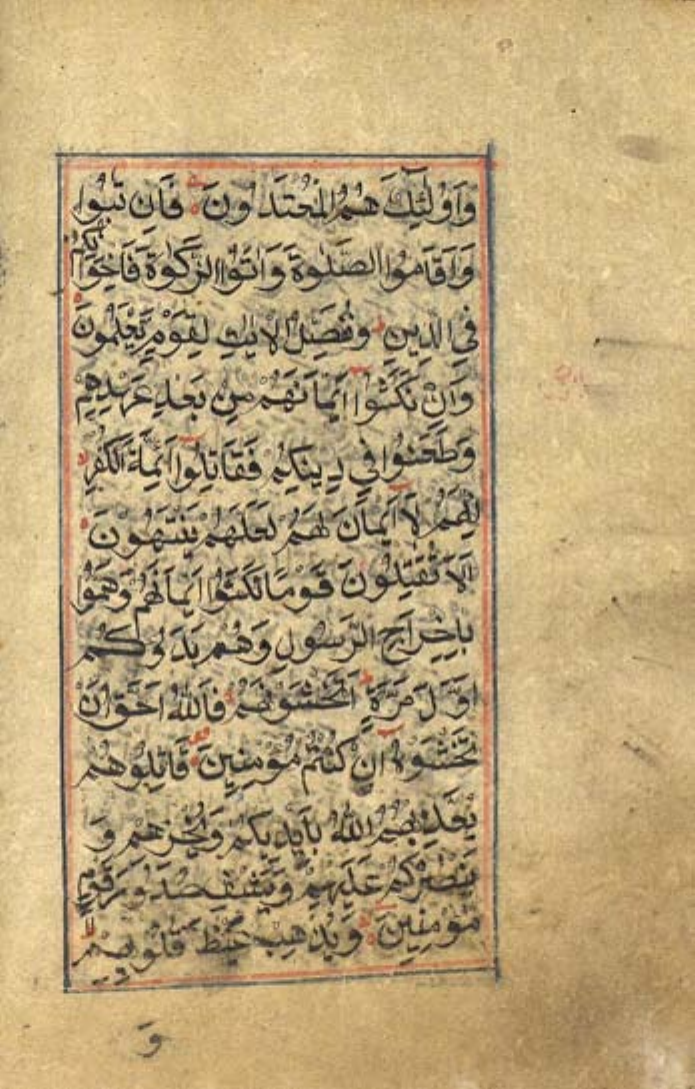 وَاُولٰٓئِكَ هُمُ الْمُعْتَدُونَ فَاِنْ تَابُوا
وَاَقَامُوا الصَّلٰوةَ وَاٰتَوُا الزَّكٰوةَ فَاِخْوَانُكُمْ
فِي الدِّينِ وَنُفَصِّلُ الْاٰيٰتِ لِقَوْمٍ يَعْلَمُونَ
وَاِنْ نَكَثُوا اَيْمَانَهُمْ مِنْ بَعْدِ عَهْدِهِمْ
وَطَعَنُوا فِي دِينِكُمْ فَقَاتِلُوا اَئِمَّةَ الْكُفْرِ
اِنَّهُمْ لَا اَيْمَانَ لَهُمْ لَعَلَّهُمْ يَنْتَهُونَ
اَلَا تُقَاتِلُونَ قَوْمًا نَكَثُوا اَيْمَانَهُمْ وَهَمُّوا
بِاِخْرَاجِ الرَّسُولِ وَهُمْ بَدَؤُكُمْ
اَوَّلَ مَرَّةٍ اَتَخْشَوْنَهُمْ فَاللّٰهُ اَحَقُّ اَنْ
تَخْشَوْهُ اِنْ كُنْتُمْ مُؤْمِنِينَ قَاتِلُوهُمْ
يُعَذِّبْهُمُ اللّٰهُ بِاَيْدِيكُمْ وَيُخْزِهِمْ وَ
يَنْصُرْكُمْ عَلَيْهِمْ وَيَشْفِ صُدُورَ قَوْمٍ
مُؤْمِنِينَ وَيُذْهِبْ غَيْظَ قُلُوبِهِمْ
وَ